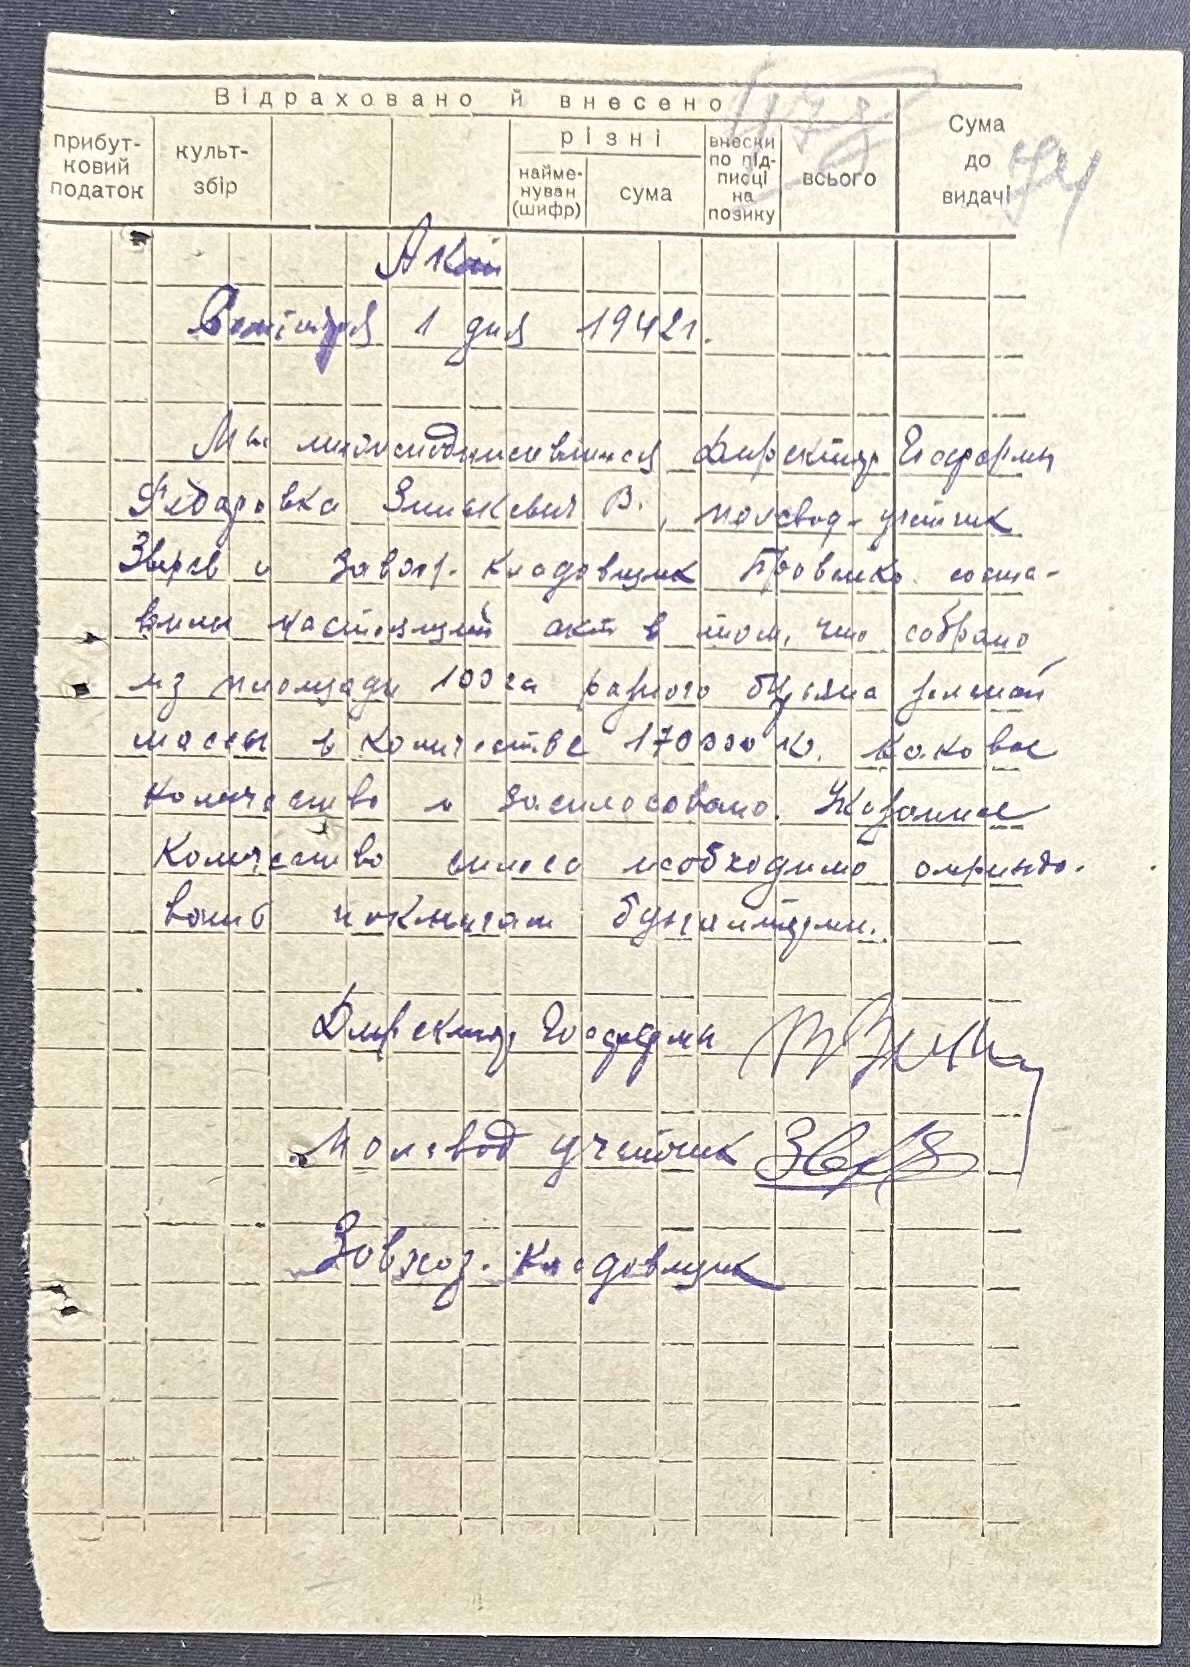 Відраховано й внесено
прибут-
ковий
податок
культ-
збір
різні
найме-
нуван
(шифр)
сума
внески
по під-
писці
на
позику
всього
Сума
до
видачі
74
Акт
Сентября 1 дня 1942 г.
Мы нижеподписавшиеся Директор Госфермы
Федоровка Зинькевич В., полевод-учетчик
Зверев и Завхоз. кладовщик соста-
вили настоящий акт в том, что собрано
из площади 100 га разного бурьяна зеленой
массы в количестве 170000 к. каковое
количество и засилосовано. Указанное
количество силоса необходимо оприходо-
вать по книгам бухгалтерии.
Директор Госфермы
Полевод учетчик
Завхоз. Кладовщик